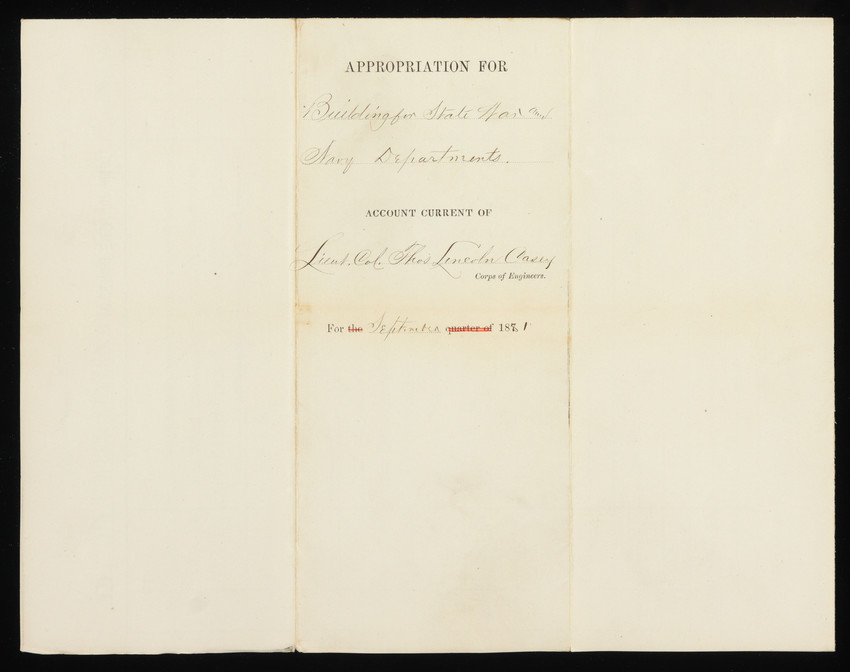 APPROPRIATION FOR
Building for State War and
Navy Departments.
ACCOUNT CURRENT OF
Lieut. Col. Thos Lincoln Casey
Corps of Engineers.
For the September quarter of 187